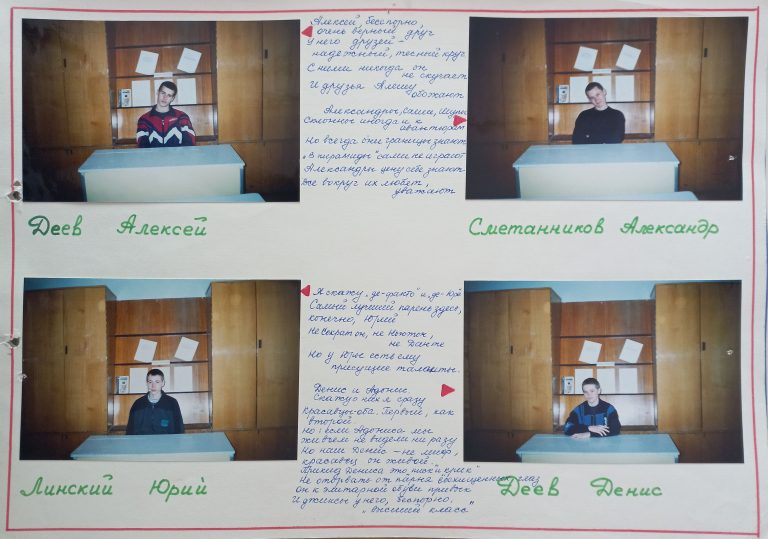 Алексей, бесспорно,
очень верный друг
У него друзей
надежный, тесный круг
С ними никогда он
не скучает
И друзья Алешу
обожают
Александры, Саши, Шуры
Склонны иногда и к
авантюрам
Но всегда они границы знают
„В пирамиды" сами не играют
Александры цену себе знают
Все вокруг их любят,
уважают
Деев Алексей
Сметанников Александр
Я скажу „де-факто" и „де-юре
Самый лучший парень здесь,
конечно, Юрий
Не Сократ он, не Ньютон,
не Данте
Но у Юры есть ему
присущие таланты.
Денис и Адонис.
Скажу о них я сразу
Красавцы оба. Первый, как
второй
Но: если Адониса мы
живьем не видели ни разу
Но наш Денис – не миф,
красавец он живой.
Прикид Дениса это „писк" и „крик"
Не оторвать от парня восхищенных глаз
Он к элитарной обуви привык
И джинсы у него, бесспорно,
„высший класс"
Линский Юрий
Деев Денис